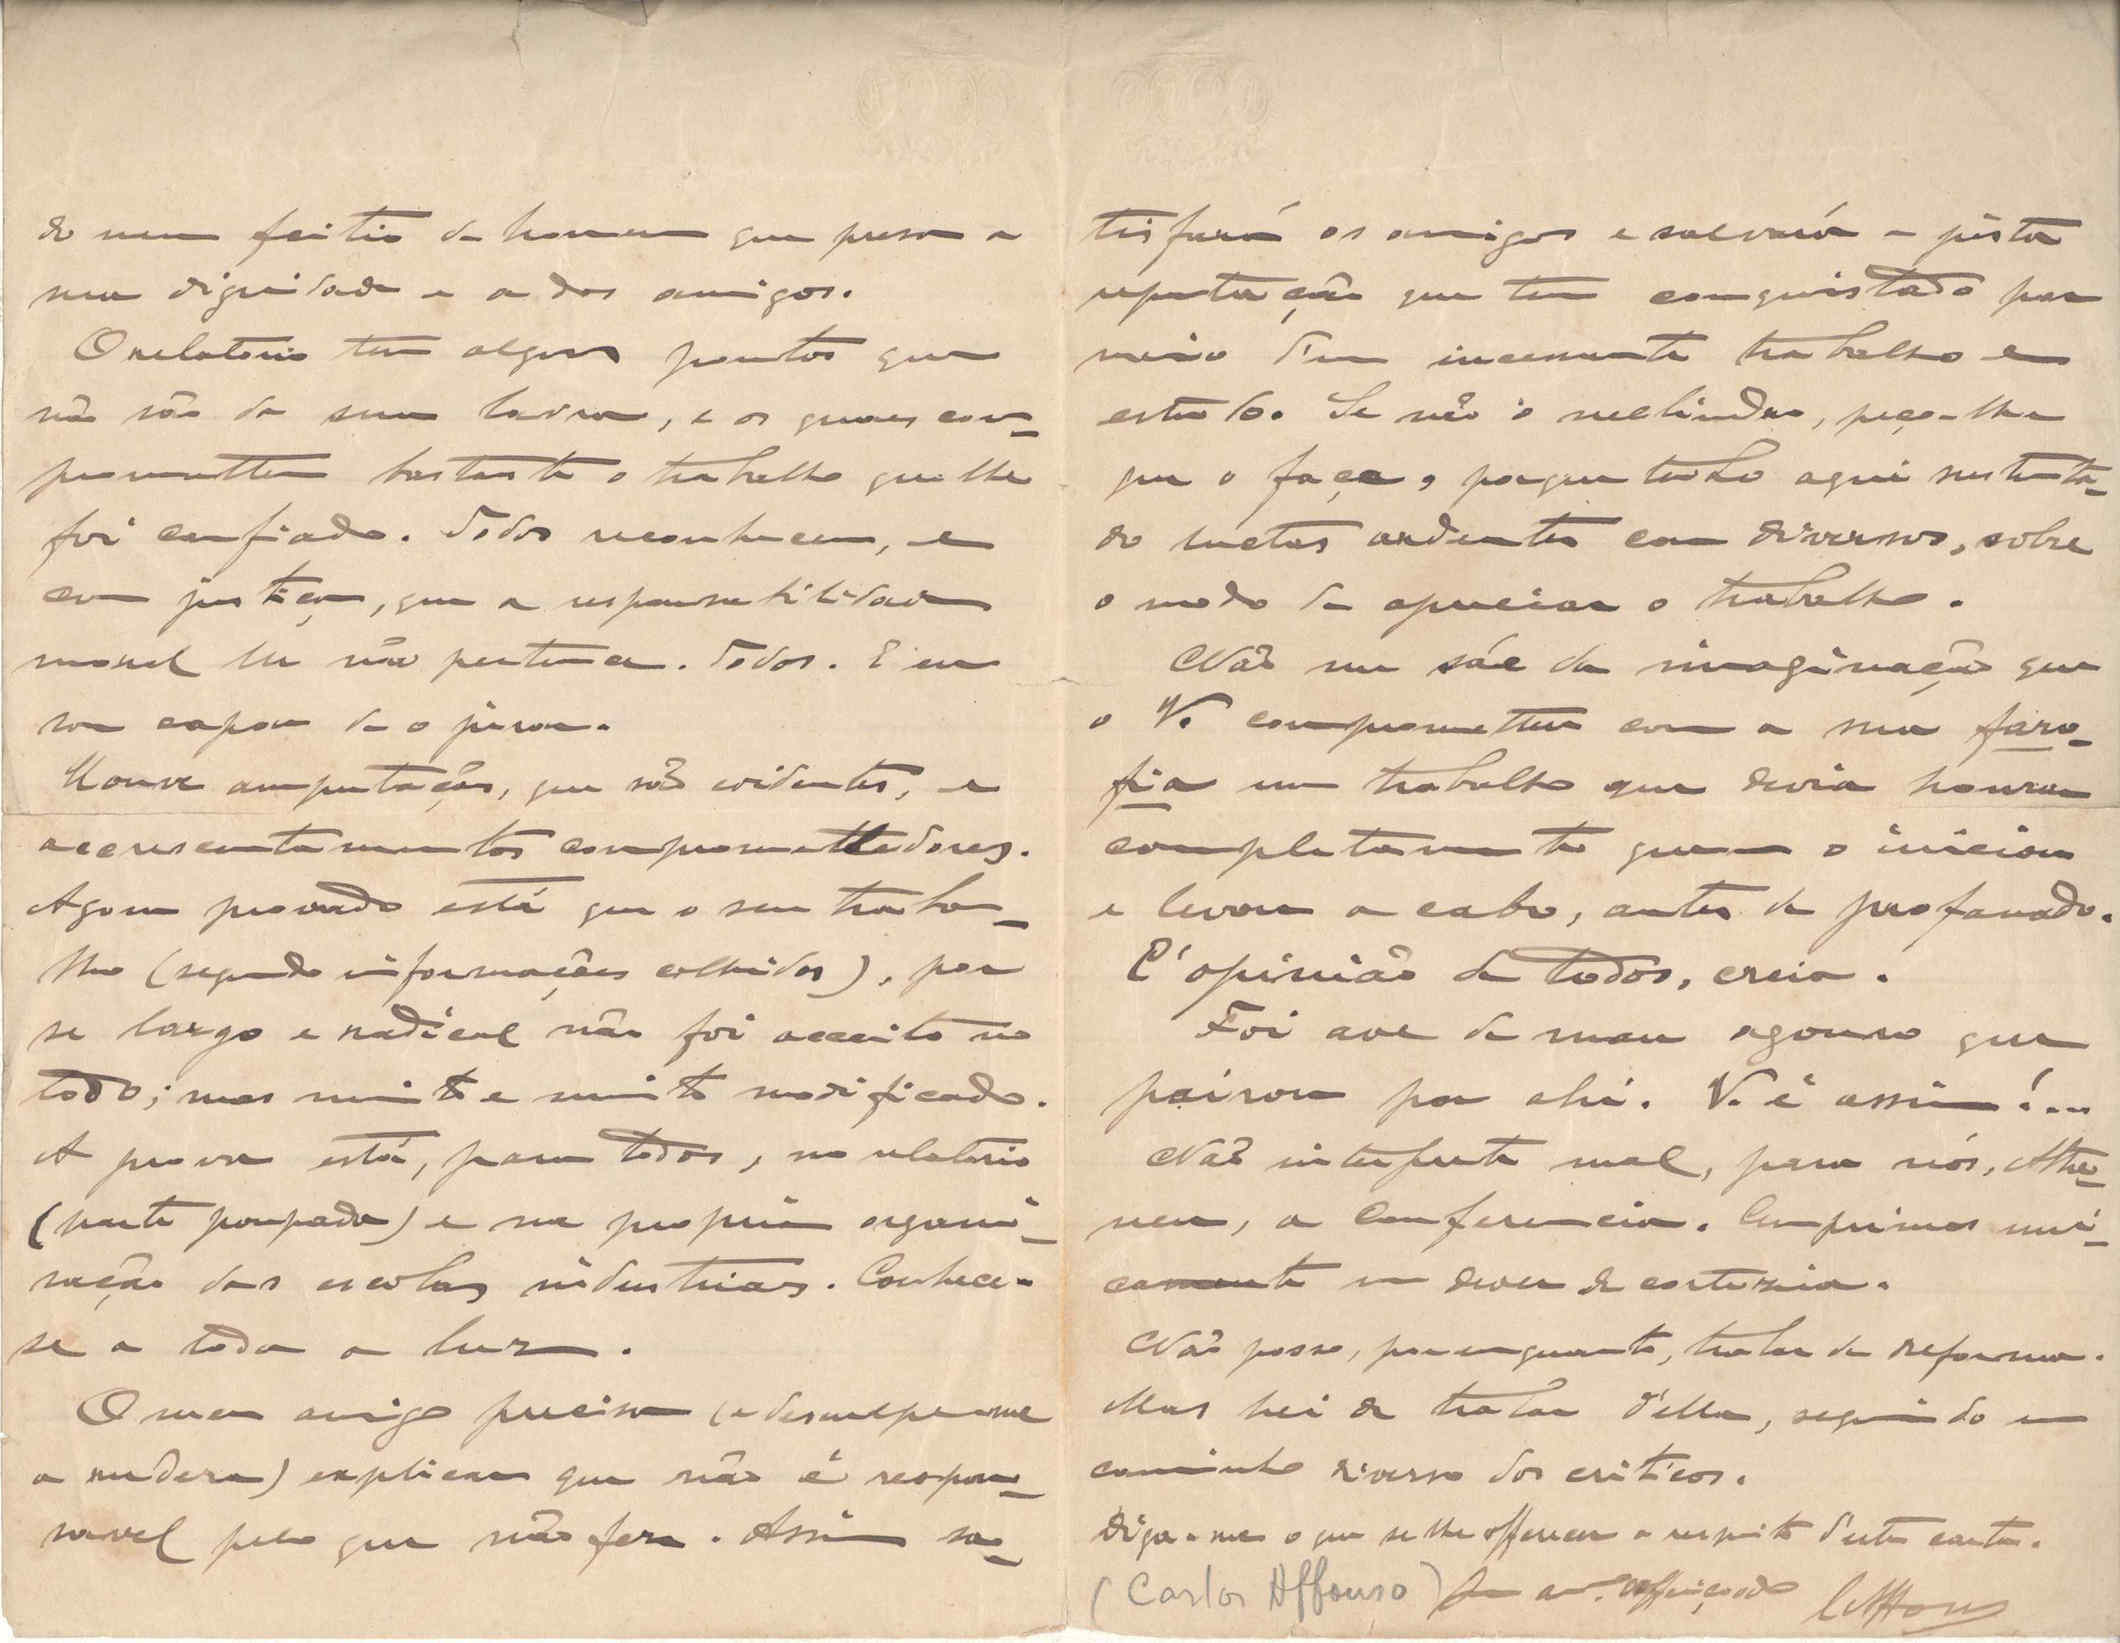 do meu feitio de homem que presa a
sua dignidade e a dos amigos.
O relatorio tem alguns pontos que
não são da sua lavra, e os quaes com-
promettem bastante o trabalho que lhe
foi confiado. Todos reconhecem, e
com justiça, que a responsabilidade
moral lhe não pertence. Todos. E eu
sou capaz de o jurar.
Houve amputações, que são evidentes, e
accrescentamentos compromettedores.
Agora provado está que o seu traba-
lho (segundo informações colhidas), por
se largo e radical não foi acceito no
todo; mas muito e muito modificado.
A prova está, para todos, no relatorio
(parte poupada) e na propria organi-
sação das escolas industriaes. Conhece-
se a toda a luz.
O meu amigo precisa (e desculpe-me
a rudeza) explicar que não é respon-
savel pelo que não fez. Assim sa-
tisfará os amigos e salvará a justa
reputação que tem conquistado por
meio d'um incessante trabalho e
estudo. Se não o melindra, peço-lhe
que o faça, porque tenho aqui sustenta-
do luctas ardentes com diversos, sobre
o modo de apreciar o trabalho.
Não me sáe da imaginação que
o V. comprometteu com a sua faro-
fia um trabalho que devia honrar
completamente quem o iniciou
e levou a cabo, antes de profanado.
E' opinião de todos, creia.
Foi ave de mau agouro que
pairou por ahi. V. é assim!...
Não interprete mal, para nós, Athe-
neu, a Conferencia. Cumprimos uni-
camente um dever de cortezia.
Não posso, por emquanto, tratar da reforma.
Mas hei de tratar d'ella, seguindo um
caminho diverso dos criticos.
Diga-me o que se lhe offerecer a respeito d'esta carta.
(Carlos Affonso) Seu am.º affeiçoado CAffonso